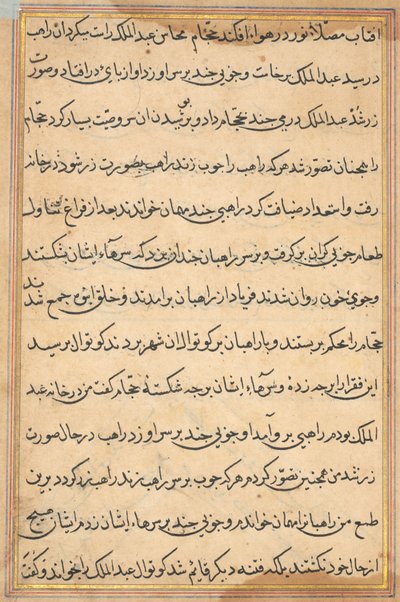 افتاب مصلا نور در هواء افکند حجام محاسن عبدالملک راست میکرد ان راهب
در رسید عبدالملک برخاست و چوبی چند بر سر او زد او از پای در افتاد و صورت
زر شد عبدالملک درمی چند بحجام داد و بر پوشیدن ان سر وصیت بسیار کرد حجام
را همچنان تصور شد هر که راهب را چوب زند راهب بصورت زر شود در خانه
رفت و استعداد ضیافت کرد راهبی چند مهمان خواند بعد از فراغ تناول
طعام چوبی کران بر کرفت و بر سر راهبان چندان بزد که سرهاء ایشان بشکستند
و جوی خون روان شدند فریاد از راهبان برامدند و خلق انبوه جمع شدند
حجام را محکم بربستند و با راهبان بر کوتوالان شهر بردند کوتوال پرسید
این فقرا را بر چه زده و سرهاء ایشان بر چه شکسته حجام کفت من در خانه عبد
الملک بودم راهبی برو آمد او چوبی چند بر سر او زد راهب در حال صورت
زر شد من همچنین تصور کردم هر که چوب بر سر راهب زند راهب زر کردد برین
طمع من راهبان را مهمان خواندم و چوبی چند بر سرهاء ایشان زدم ایشان هیچ
از حال خود نکشتند بلکه فتنه دیکر قایم شد کوتوال عبدالملک را خواند و کفت